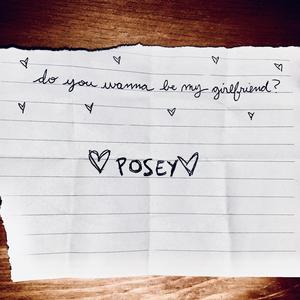 do you wanna be my girlfriend?
POSEY